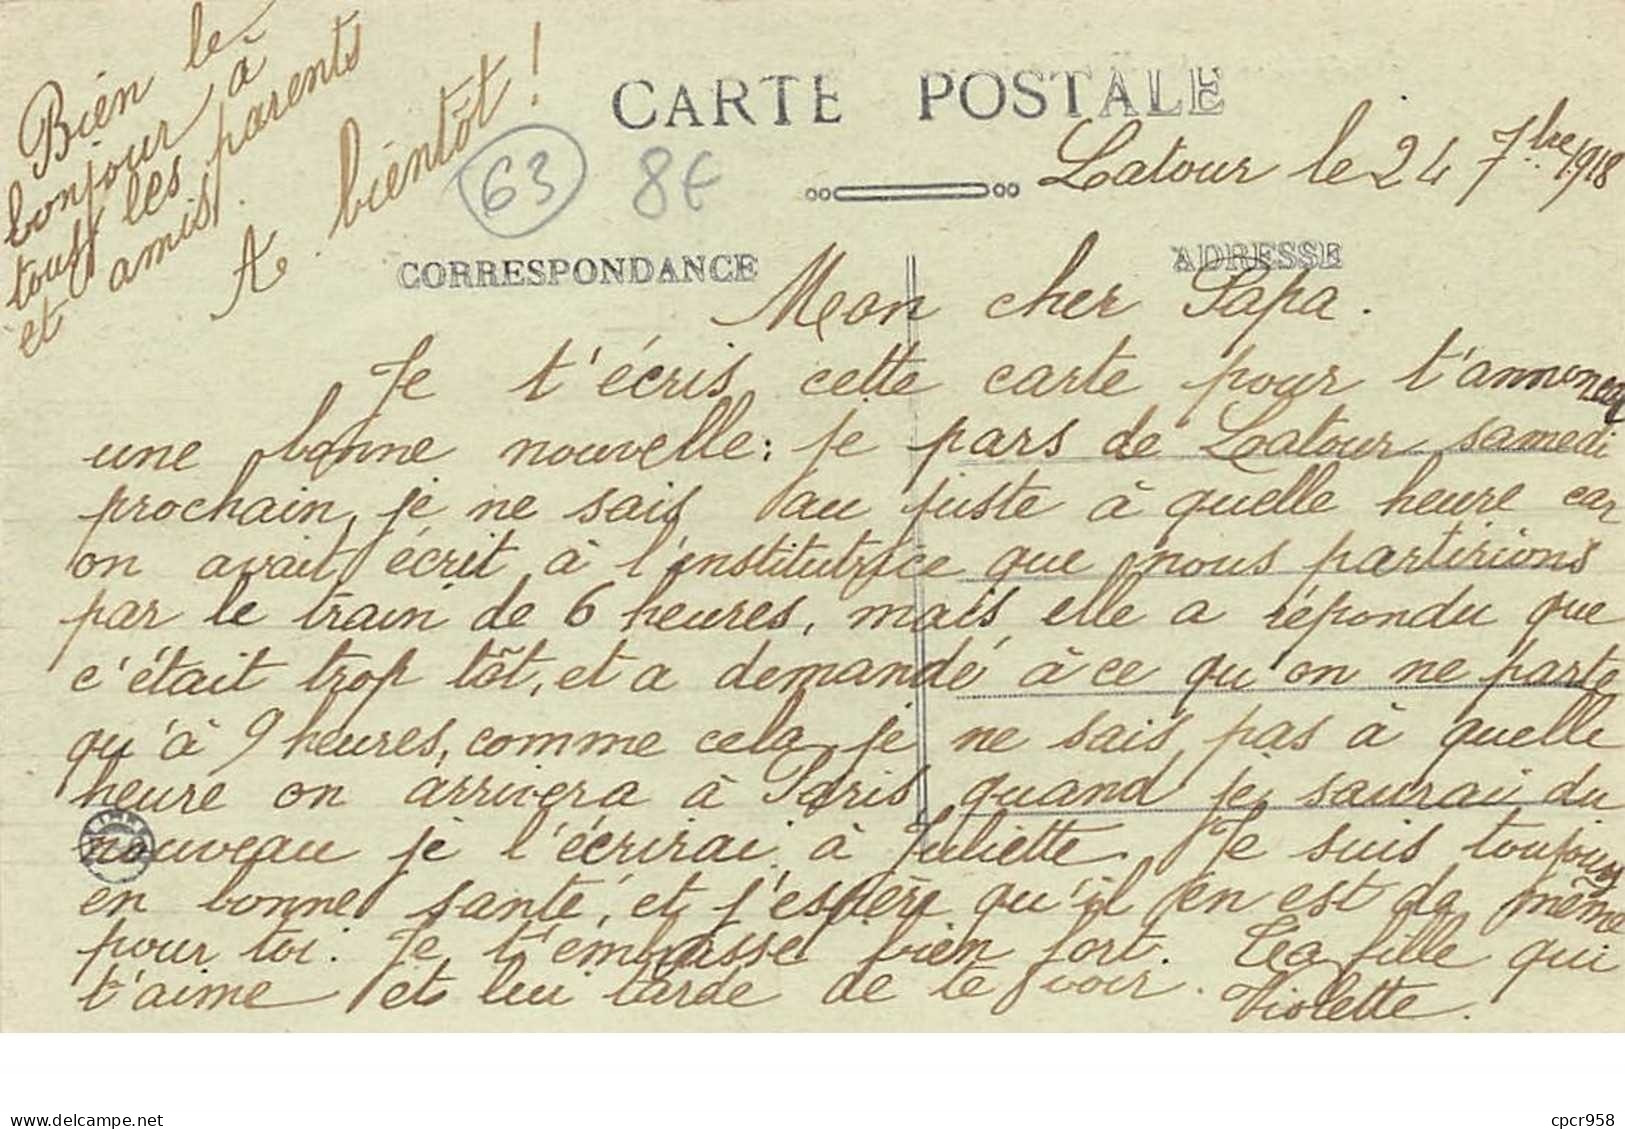 Bien le
bonjour à
tous les parents
et amis.
A bientôt !
CARTE POSTALE
63
8€
Latour le 24 7bre 1918
CORRESPONDANCE
ADRESSE
Mon cher Papa.
Je t'écris cette carte pour t'annoncer
une bonne nouvelle : je pars de Latour samedi
prochain, je ne sais au juste à quelle heure car
on avait écrit à l'institutrice que nous partirions
par le train de 6 heures, mais elle a répondu que
c'était trop tôt, et a demandé à ce qu'on ne parte
qu'à 9 heures, comme cela je ne sais pas à quelle
heure on arrivera à Paris, quand je saurai du
nouveau je l'écrirai à Juliette. Je suis toujours
en bonne santé, et j'espère qu'il en est de même
pour toi. Je t'embrasse bien fort. Ta fille qui
t'aime et lui tarde de te voir. Violette.
delcampe.net
cpcr958